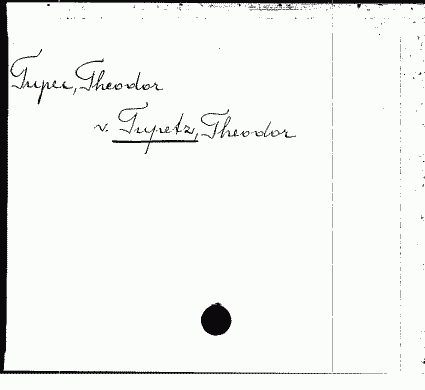 Tupec, Theodor
v. Tupetz, Theodor